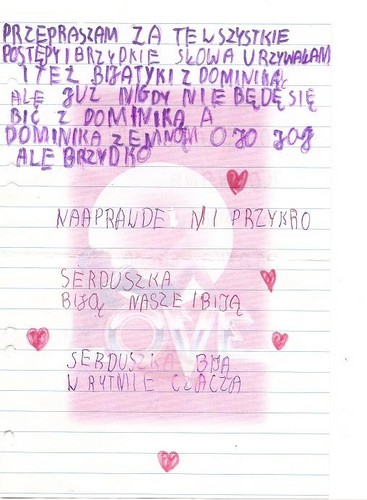 PRZEPRASZAM ZA TE WSZYSTKIE
POSTĘPY I BRZYDKIE SŁOWA URZYWAŁAM
I TEŻ BIJATYKI Z DOMINIKĄ
ALE JUŻ NIGDY NIE BĘDĘ SIĘ
BIĆ Z DOMINIKĄ A
DOMINIKA ZEMNOM OJO JOJ
ALE BRZYDKO
NAAPRAWDE MI PRZYKRO
SERDUSZKA
BIJĄ NASZE I BIJĄ
LOVE
SERDUSZKA BIJĄ
W RYTMIE CZACZA